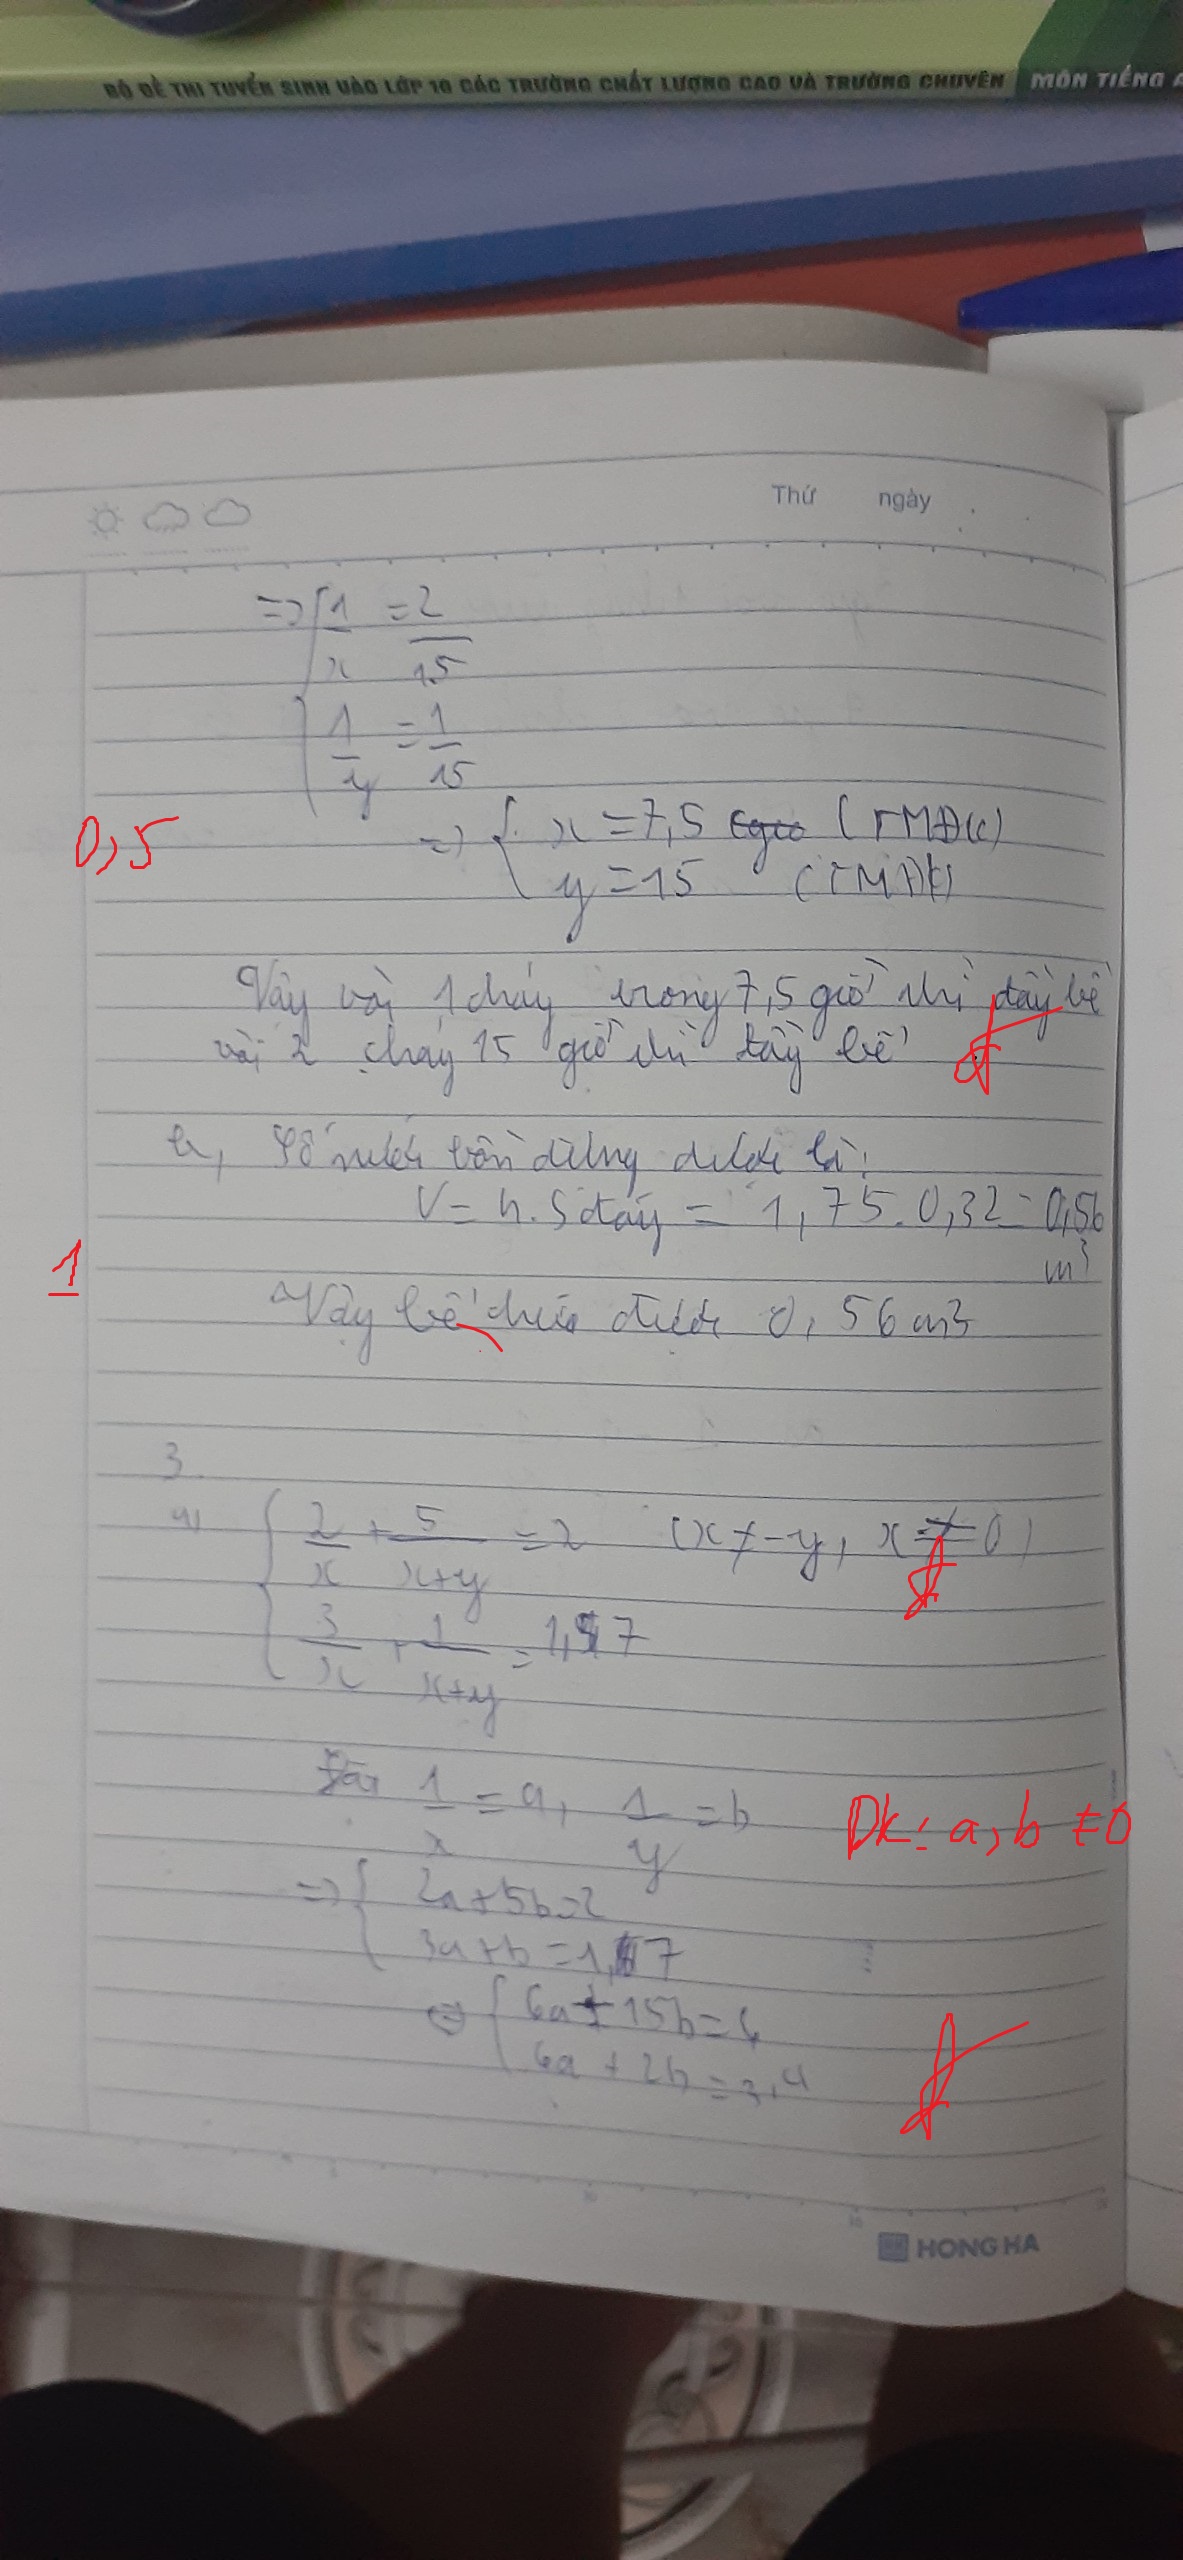 BỘ ĐỀ THI TUYỂN SINH VÀO LỚP 10 CÁC TRƯỜNG CHẤT LƯỢNG CAO VÀ TRƯỜNG CHUYÊN MÔN TIẾNG A
Thứ ngày
=> { 1/x = 2/15
1/y = 1/15
0,5
=> { x = 7,5 (TMĐK)
y = 15 (TMĐK)
Vậy vòi 1 chảy trong 7,5 giờ thì đầy bể
vòi 2 chảy 15 giờ thì đầy bể
b, Số nước bồn đựng được là:
V = h. Sđáy = 1,75. 0,32 = 0,56
m³
1
Vậy bể chứa được 0,56 m3
3
a) { 2/x + 5/x+y = 2 (x ≠ -y, x ≠ 0)
3/x + 1/x+y = 1,7
Đặt 1/x = a, 1/y = b
Đk: a, b ≠ 0
=> { 2a + 5b = 2
3a + b = 1,7
<=> { 6a + 15b = 6
6a + 2b = 3,4
HONG HA